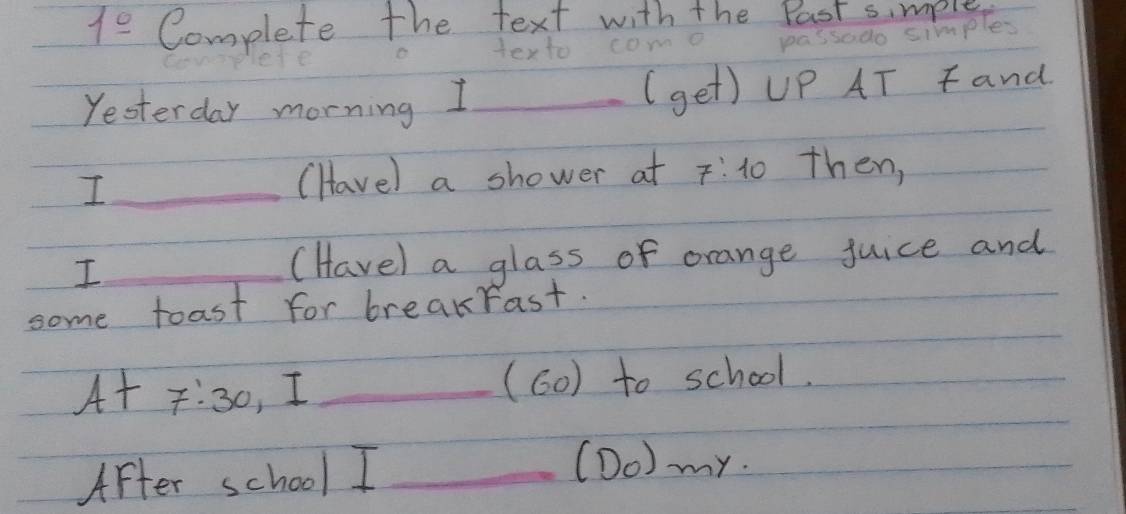 1º Complete the text with the Past simple.
complete o texto com o passado simples
Yesterday morning I ______ (get) UP AT 7 and
I ______ (Have) a shower at 7:10 Then,
I ______ (Have) a glass of orange juice and
some toast for breakfast.
At 7:30, I ______ (Go) to school.
AFter school I ______ (Do) my.